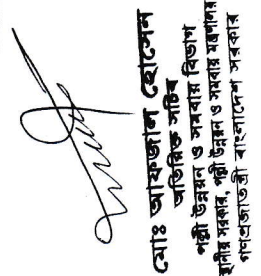 মোঃ আফজাল হোসেন
অতিরিক্ত সচিব
পল্লী উন্নয়ন ও সমবায় বিভাগ
স্থানীয় সরকার, পল্লী উন্নয়ন ও সমবায় মন্ত্রণালয়
গণপ্রজাতন্ত্রী বাংলাদেশ সরকার